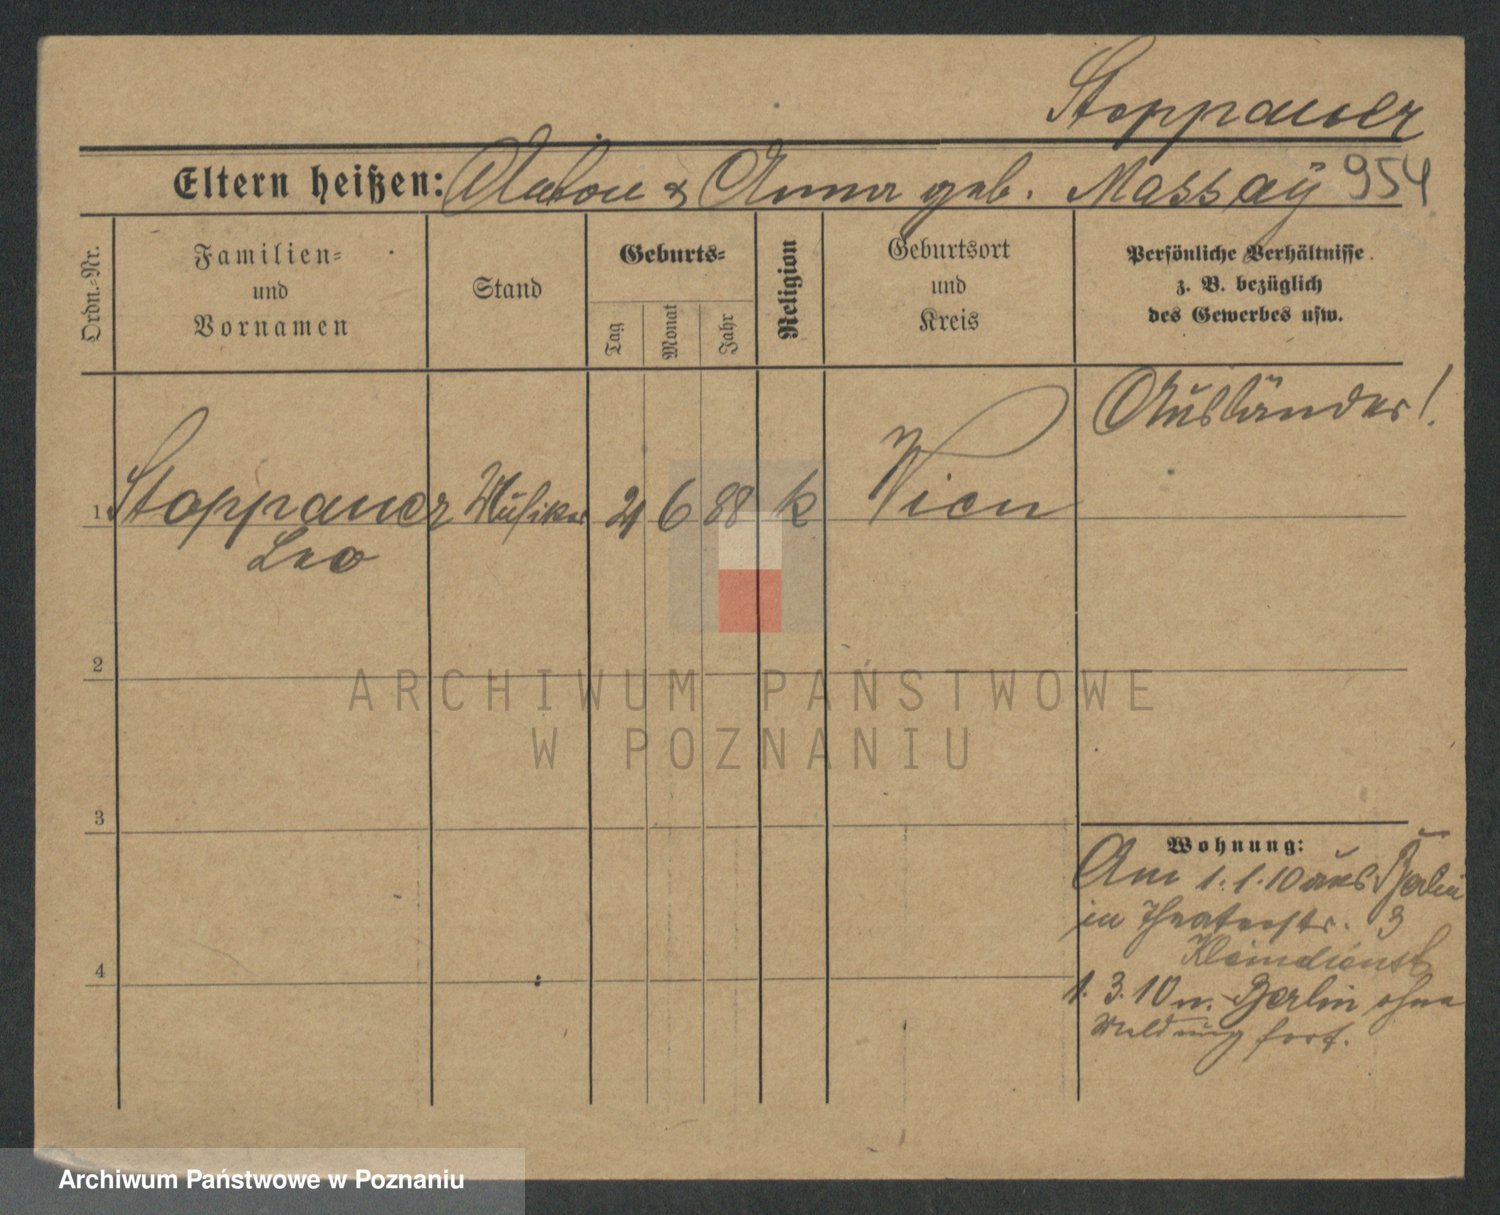 Stoppauer
Eltern heißen: Anton & Anna geb. Massaÿ 954
Ordn.=Nr.
Familien=
und
Vornamen
Stand
Geburts=
Tag
Monat
Jahr
Religion
Geburtsort
und
Kreis
Persönliche Verhältnisse
z. B. bezüglich
des Gewerbes usw.
Ausländer!
1 Stoppauer Musiker 21 6 88 k Wien
Leo
2
3
4
Wohnung:
Am 1.1.10 aus Berlin
in Theaterstr. 3
Kleindienst
1.3.10 n. Berlin ohne
Meldung fort.
ARCHIWUM PAŃSTWOWE
W POZNANIU
Archiwum Państwowe w Poznaniu